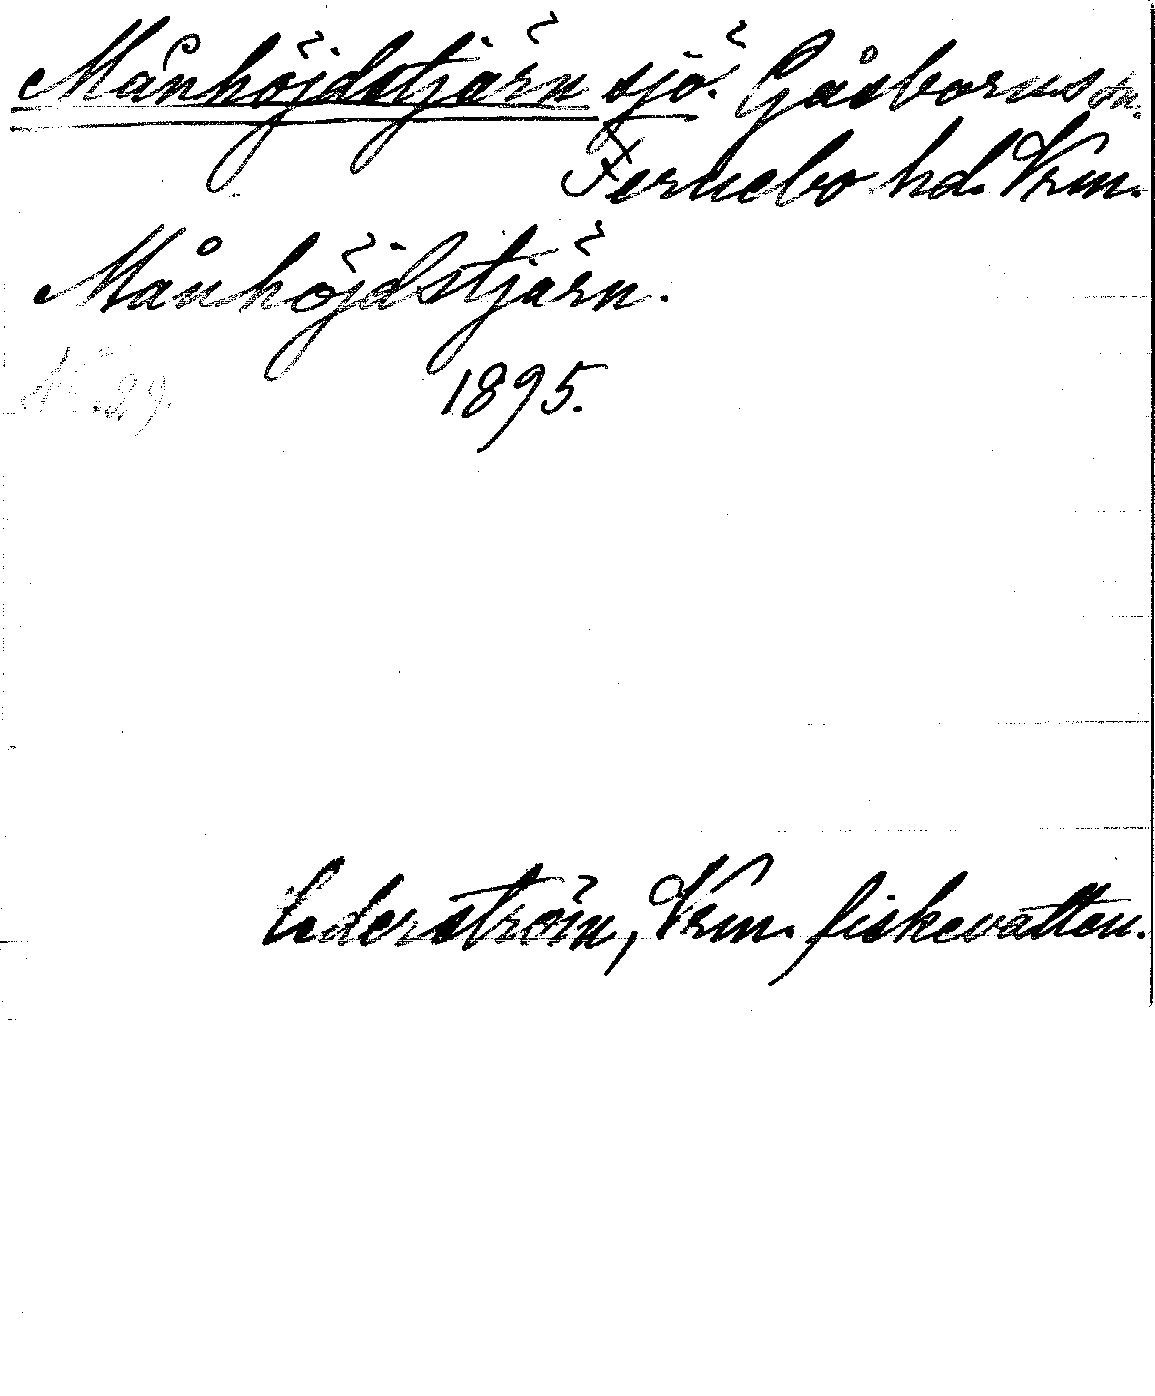 Månhöjdstjärn sjö. Gåsborns sn.
Fernebo hd. Vrm.
Månhöjdstjärn.
29.
1895.
Cederström, Vrm. fiskevatten.